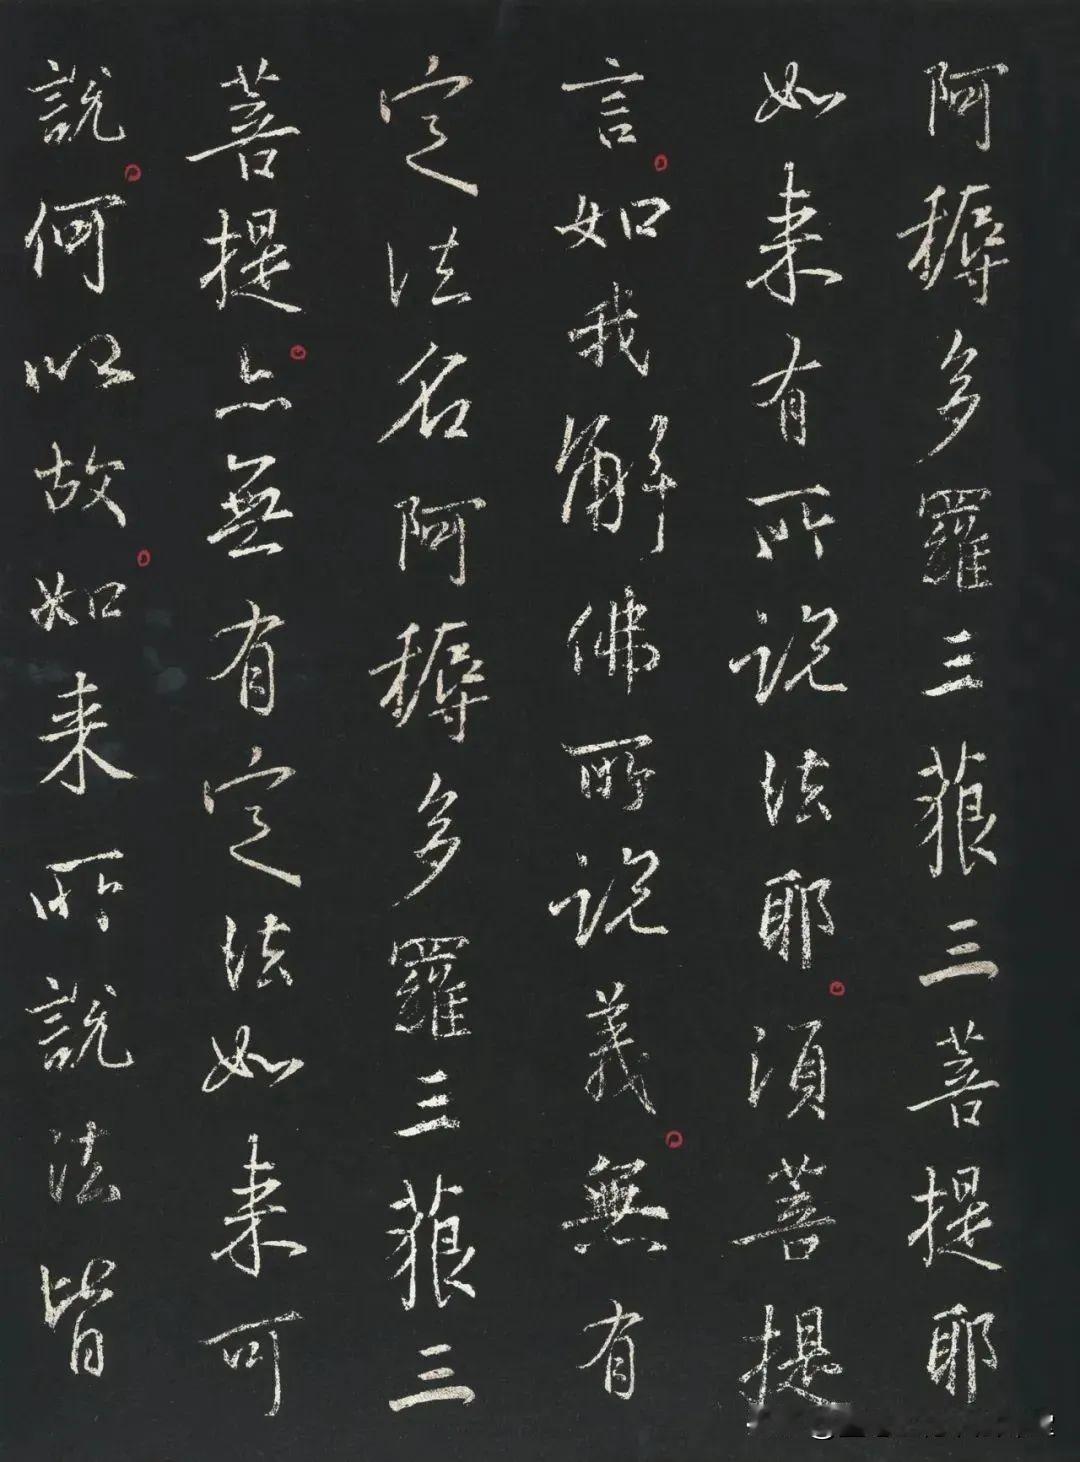 阿耨多羅三藐三菩提耶
如来有所說法耶須菩提
言如我解佛所說義無有
定法名阿耨多羅三藐三
菩提亦無有定法如来可
說何以故如来所說法皆